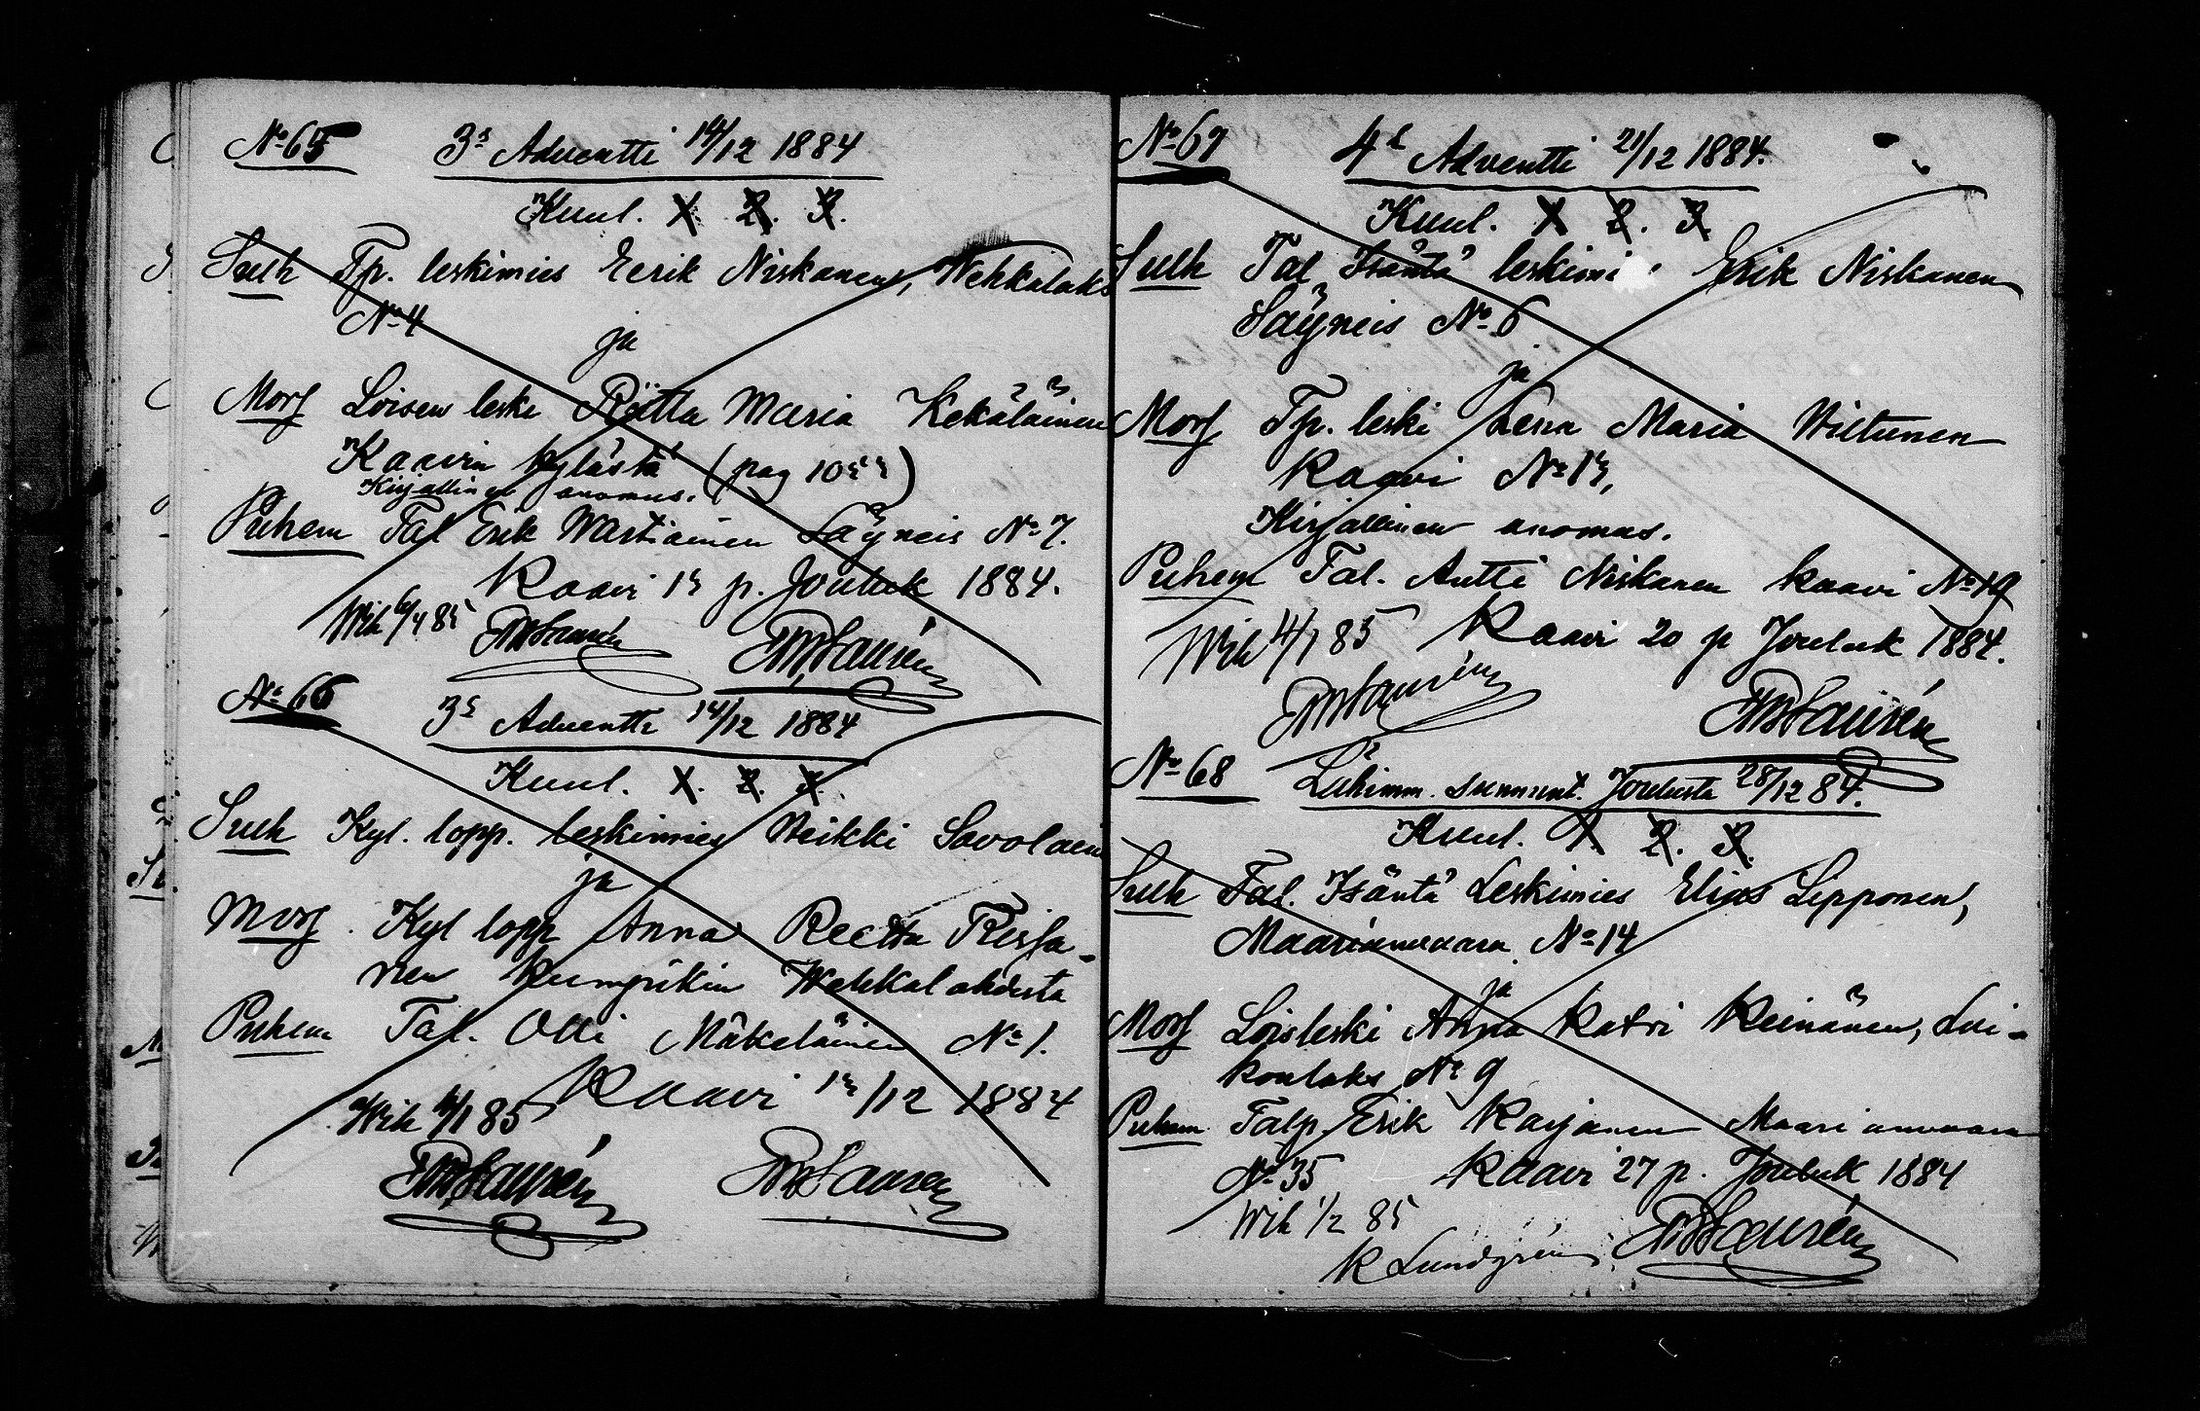 No 65 3s Adventti 14/12 1884
Kuul. 1. 2. 3.
Sulh Tp. leskimies Eerik Niskanen, Wehkalaks
No 4
ja
Mors Loisen leski Riitta Maria Kekäläinen
Kaavin kylästä (pag 1055)
Kirjallinen anomus.
Puhem Tal Erik Wartiainen Säyneis No 7.
Kaavi 15 p. Jouluk 1884.
Wih 6/4 85
No 66
3s Adventti 14/12 1884
Kuul. 1. 2. 3.
Sulh Kyl. lopp. leskimies Heikki Savolain
ja
Mors. Kyl lopp Anna Reetta
nen Wehkalahdesta
Puhem Tal. Olli Mäkeläinen No 1.
Kaavi 15/12 1884
Wih 85
No 67 4s Adventti 21/12 1884.
Kuul. 1 2. 3.
Sulh Tal Isäntä leskimi Erik Niskanen
Säyneis No 6
ja
Mors Tp. leski Lena Maria Hiltunen
Kaavi No 15,
Kirjallinen anomus.
Puhem Tal. Antti Niskanen Kaavi No 19
Wih 4/1 85 Kaavi 20 p Jouluk 1884.
No 68 Lähimm. sunnunt. Joulusta 28/12 84.
Kuul. 1 2. 3.
Sulh Tal. Isäntä Leskimies Elias Lepponen,
Maarianvaara No 14
ja
Mors Loisleski Anna Katri Keinänen, Lui-
konlaks No 9
Puhem Talp. Erik Karjanen Maarianvaara
No 35 Kaavi 27 p. Jouluk 1884
Wih 1/2 85
K Lundgrén